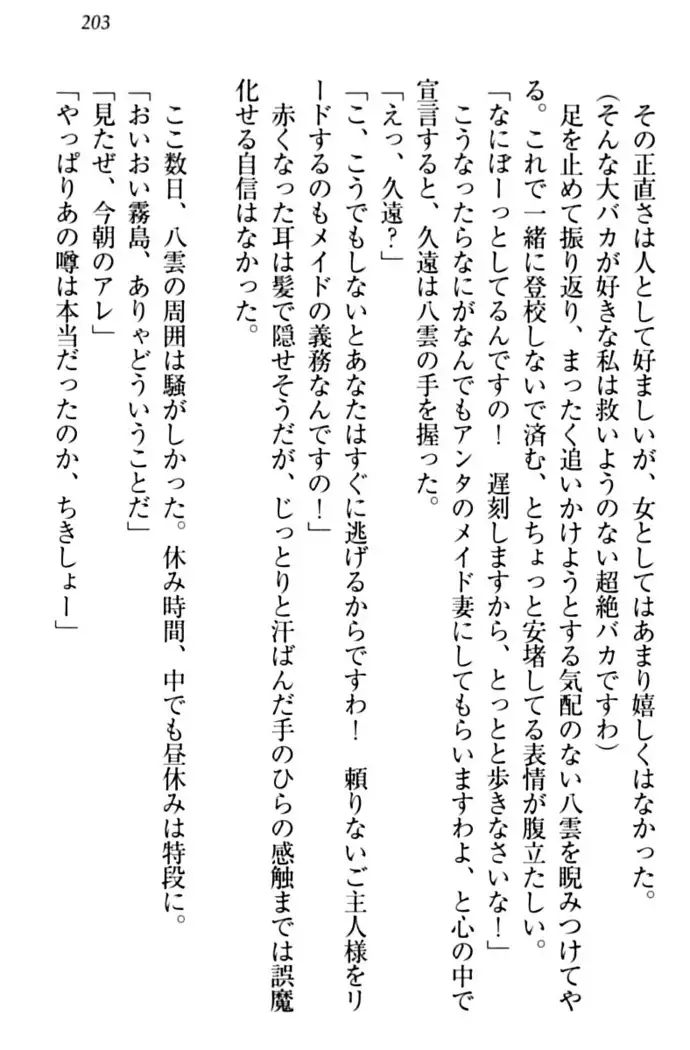 203
その正直さは人として好ましいが、女としてはあまり嬉しくはなかった。
(そんな大バカが好きな私は救いようのない超絶バカですわ)
足を止めて振り返り、まったく追いかけようとする気配のない八雲を睨みつけてや
る。これで一緒に登校しないで済む、とちょっと安堵してる表情が腹立たしい。
「なにぼーっとしてるんですの！　遅刻しますから、とっとと歩きなさいな！」
こうなったらなにがなんでもアンタのメイド妻にしてもらいますわよ、と心の中で
宣言すると、久遠は八雲の手を握った。
「えっ、久遠？」
「こ、こうでもしないとあなたはすぐに逃げるからですわ！　頼りないご主人様をリ
ードするのもメイドの義務なんですの！」
赤くなった耳は髪で隠せそうだが、じっとりと汗ばんだ手のひらの感触までは誤魔
化せる自信はなかった。
ここ数日、八雲の周囲は騒がしかった。休み時間、中でも昼休みは特段に。
「おいおい霧島、ありゃどういうことだ」
「見たぜ、今朝のアレ」
「やっぱりあの噂は本当だったのか、ちきしょー」